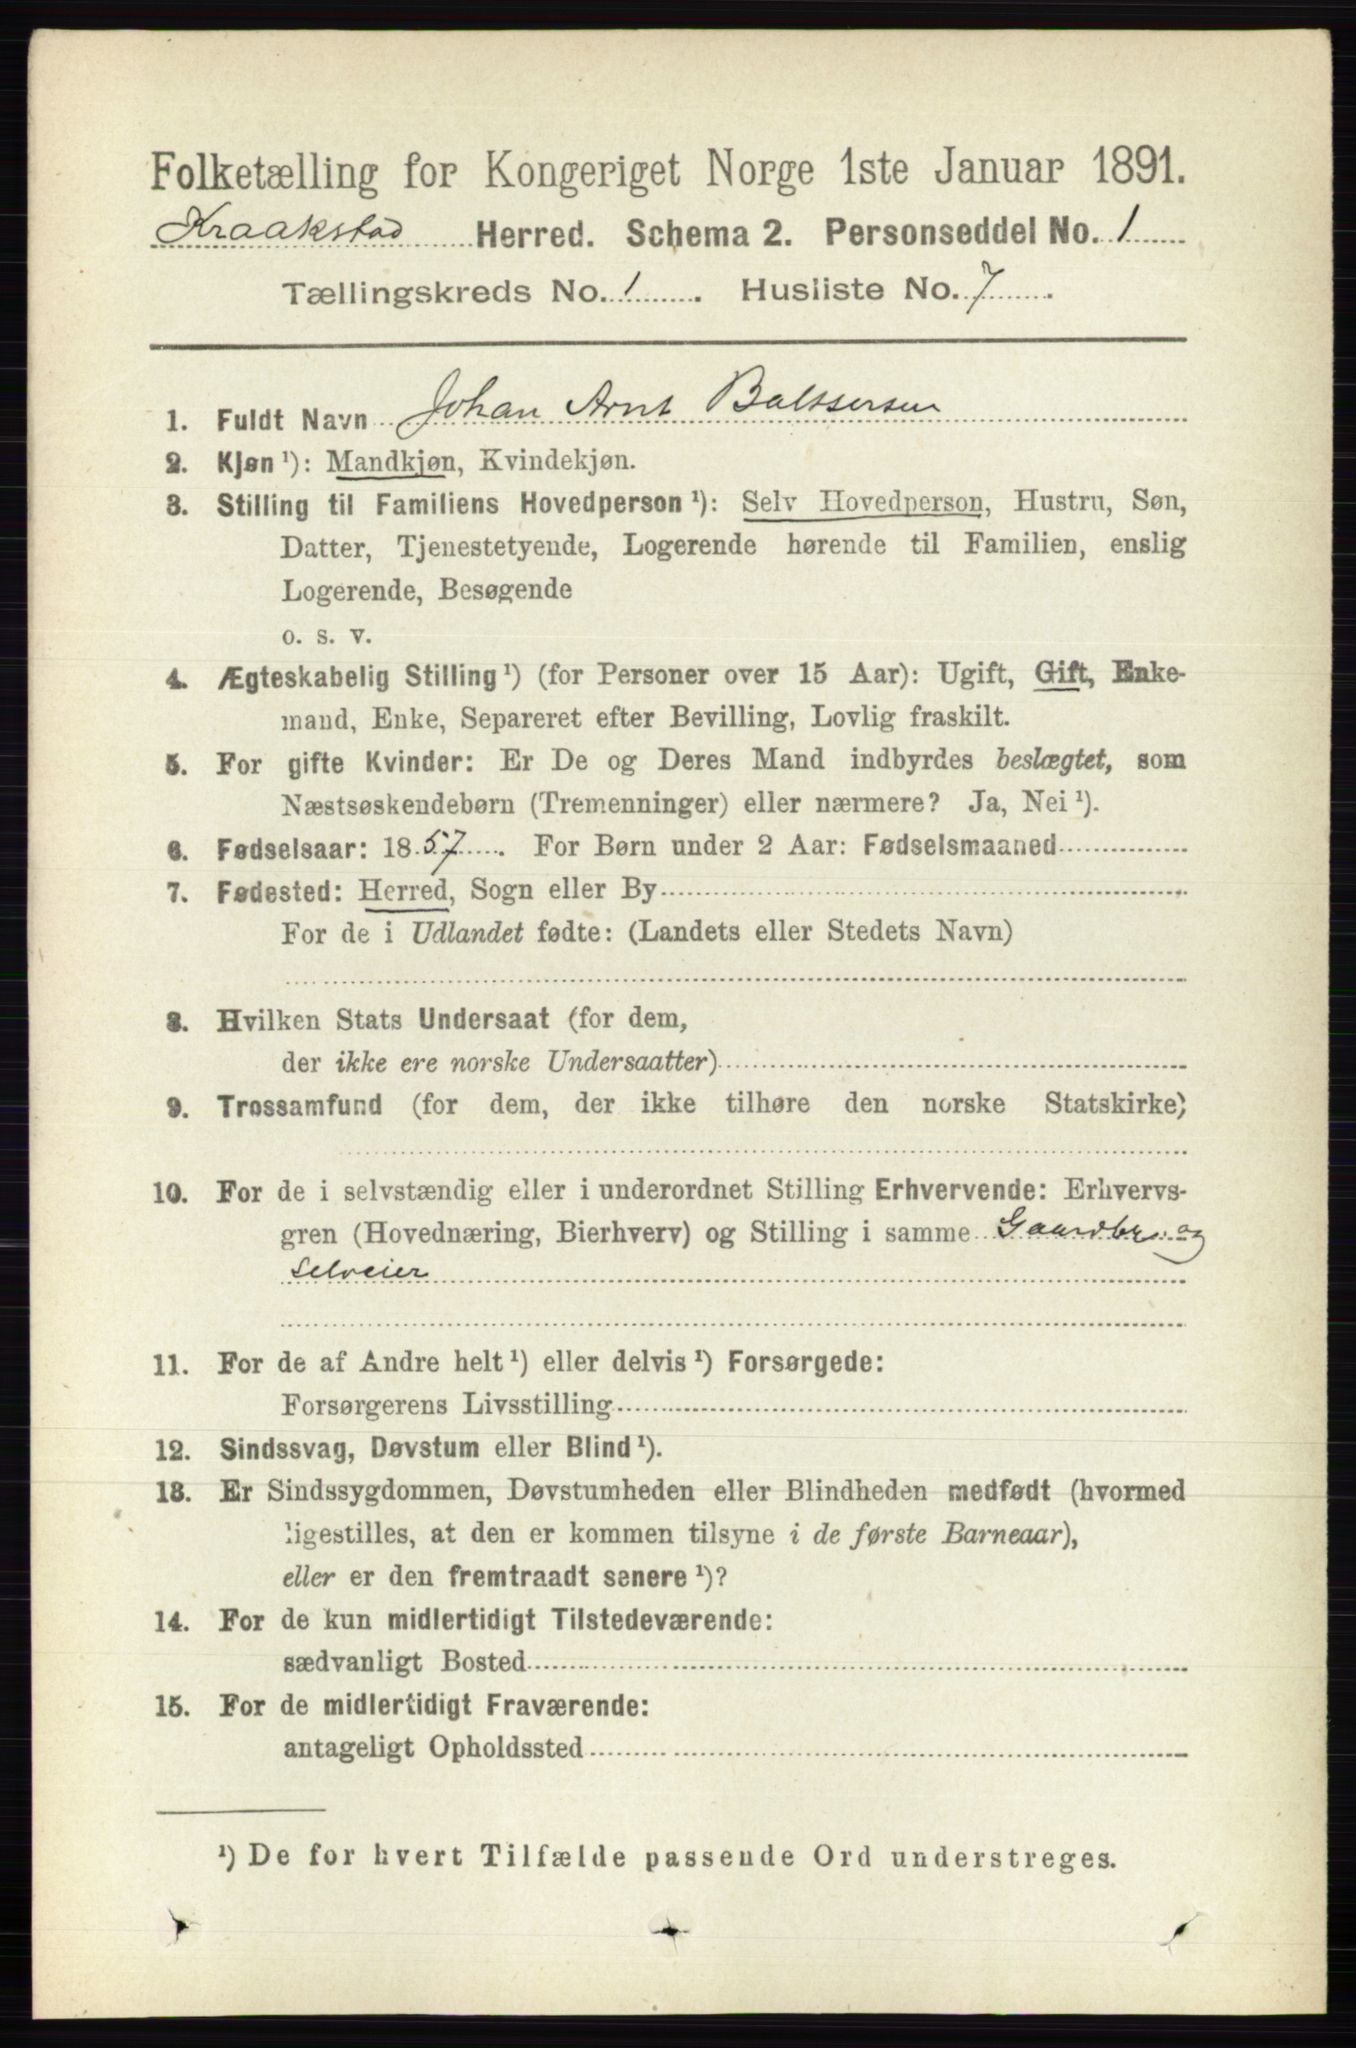 Folketælling for Kongeriget Norge 1ste Januar 1891.
Kraakstad Herred. Schema 2. Personseddel No. 1
Tællingskreds No. 1. Husliste No. 7.
1. Fuldt Navn Johan Arnt Baltsersen
2. Kjøn ¹): Mandkjøn, Kvindekjøn.
3. Stilling til Familiens Hovedperson ¹): Selv Hovedperson, Hustru, Søn,
Datter, Tjenestetyende, Logerende hørende til Familien, enslig
Logerende, Besøgende
o. s. v.
4. Ægteskabelig Stilling ¹) (for Personer over 15 Aar): Ugift, Gift, Enke-
mand, Enke, Separeret efter Bevilling, Lovlig fraskilt.
5. For gifte Kvinder: Er De og Deres Mand indbyrdes beslægtet, som
Næstsøskendebørn (Tremenninger) eller nærmere? Ja, Nei ¹).
6. Fødselsaar: 1857. For Børn under 2 Aar: Fødselsmaaned
7. Fødested: Herred, Sogn eller By
For de i Udlandet fødte: (Landets eller Stedets Navn)
8. Hvilken Stats Undersaat (for dem,
der ikke ere norske Undersaatter)
9. Trossamfund (for dem, der ikke tilhøre den norske Statskirke)
10. For de i selvstændig eller i underordnet Stilling Erhvervende: Erhvervs-
gren (Hovednæring, Bierhverv) og Stilling i samme Gaardbr. og
Selveier
11. For de af Andre helt ¹) eller delvis ¹) Forsørgede:
Forsørgerens Livsstilling
12. Sindssvag, Døvstum eller Blind ¹).
13. Er Sindssygdommen, Døvstumheden eller Blindheden medfødt (hvormed
ligestilles, at den er kommen tilsyne i de første Barneaar),
eller er den fremtraadt senere ¹)?
14. For de kun midlertidigt Tilstedeværende:
sædvanligt Bosted
15. For de midlertidigt Fraværende:
antageligt Opholdssted
¹) De for hvert Tilfælde passende Ord understreges.